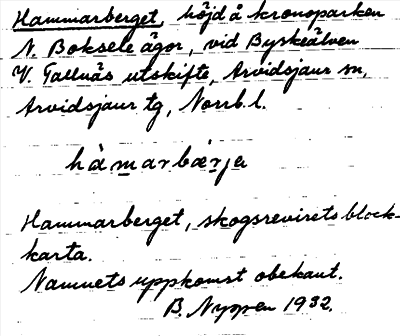 Hammarberget, höjd å kronoparken
N. Boksele ägor, vid Byskeälven
V. Tallnäs utskifte, Arvidsjaur sn,
Arvidsjaur tg, Norrb. l.
håmarbærja
Hammarberget, skogsrevirets block-
karta.
Namnets uppkomst obekant.
B. Nyppen 1932.